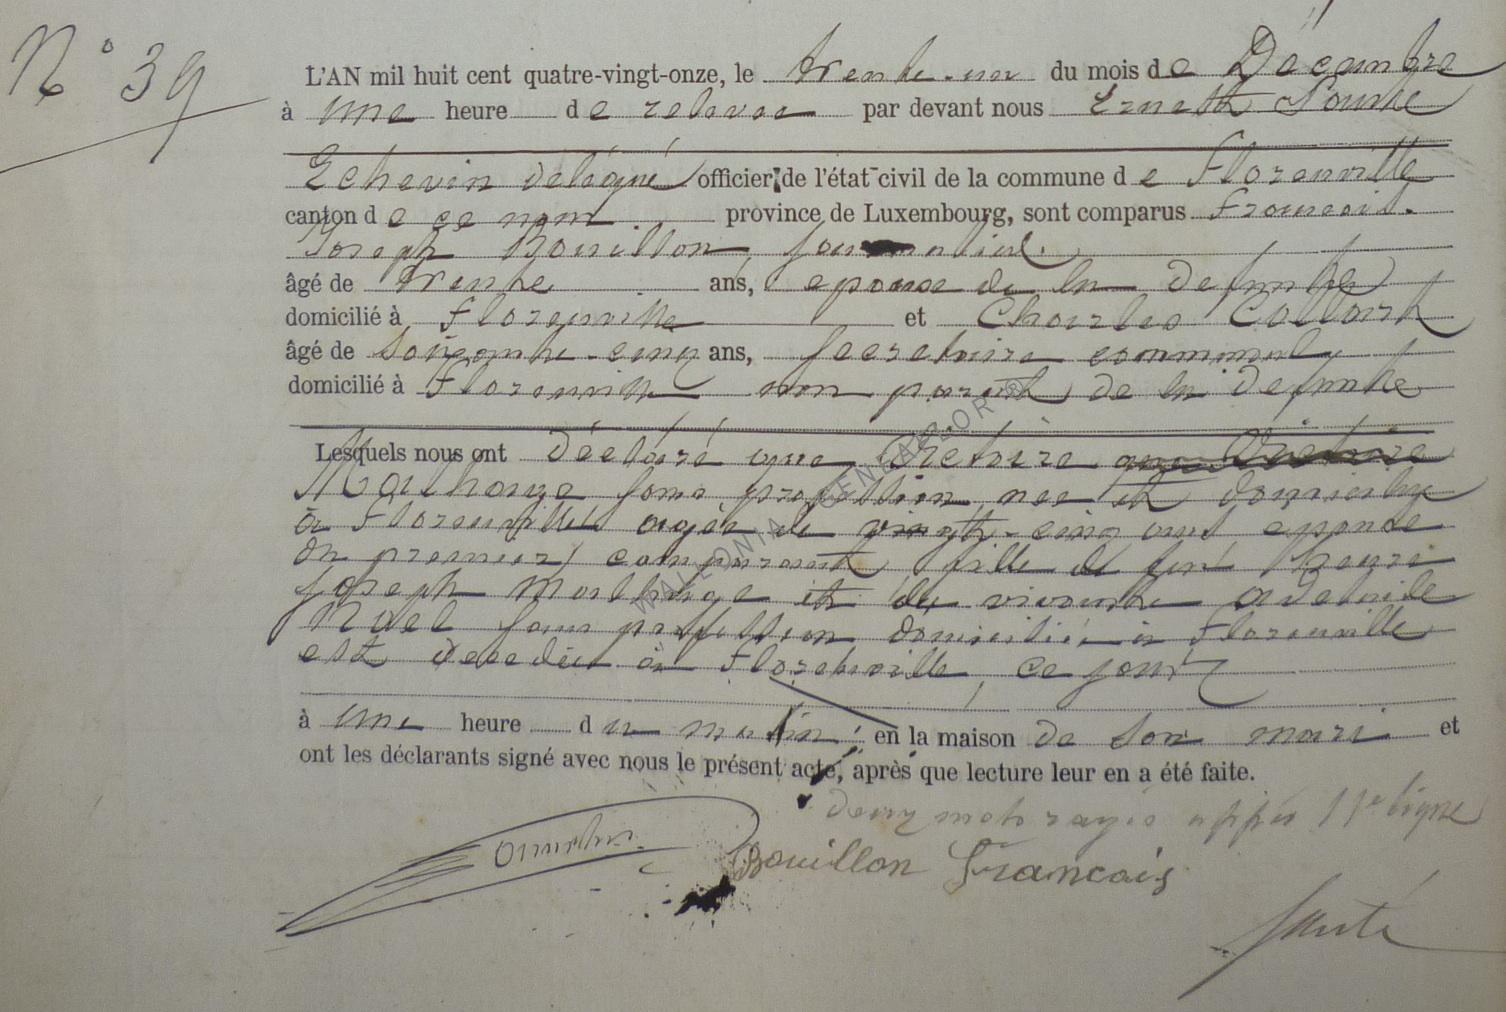 N° 39
L'AN mil huit cent quatre-vingt-onze, le trente-un du mois de Décembre
à une heure de relevée par devant nous Ernest
Echevin délégué officier de l'état civil de la commune de Florenville
canton de ce nom province de Luxembourg, sont comparus François
Joseph Bouillon, journalier
âgé de trente ans, epoux de la defunte
domicilié à Florenville et Charles Collart
âgé de soixante-cinq ans, secretaire communal
domicilié à Florenville non parent de la defunte
Lesquels nous ont déclaré que Victoire que Victoire
Malhage sans profession, née et domiciliée
à Florenville agée de vingt-cinq ans, epouse
du premier comparant fille de feu Henri
Joseph Malhage et de vivante Adelaide
Noel sans profession domiciliée à Florenville
est decedée à Florenville, ce jour
à une heure du matin, en la maison de son mari et
ont les déclarants signé avec nous le présent acte, après que lecture leur en a été faite.
deux mots rayés 11e ligne
Bouillon Francois
WALLONIA GENEALOR